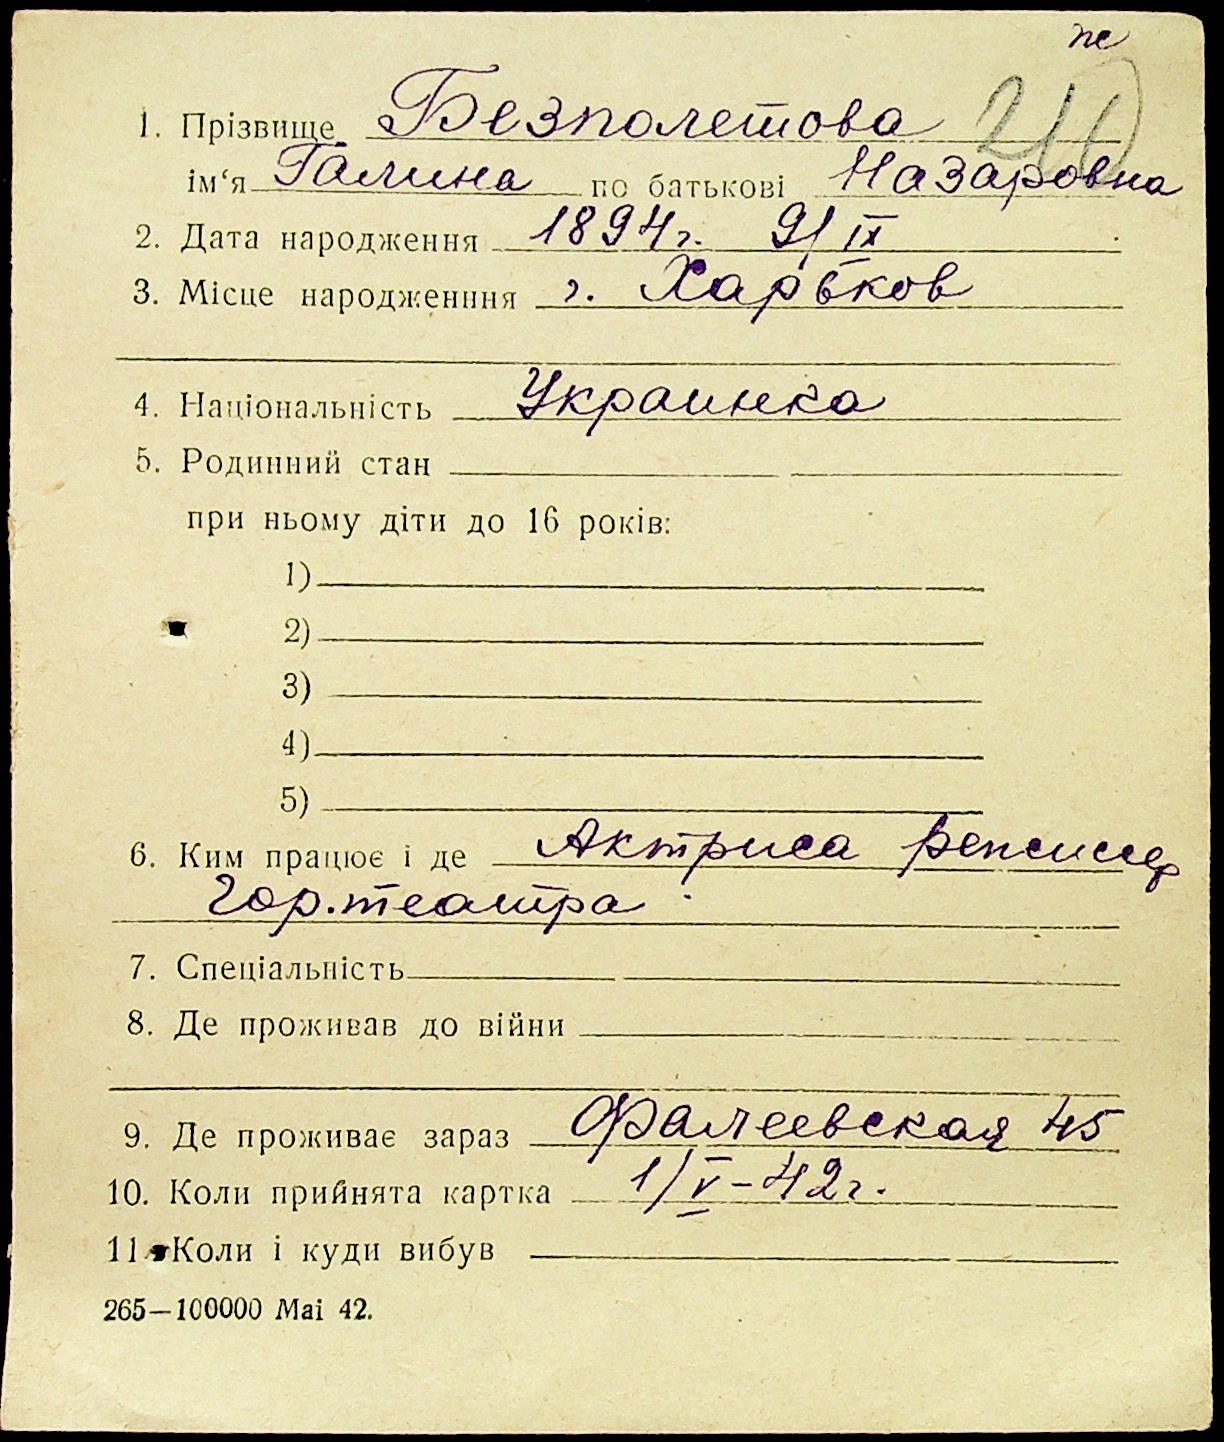 пе
210
1. Прізвище Безполетова
ім‘я Галина по батькові Назаровна
2. Дата народження 1894 г. 9/IX
3. Місце народженння г. Харьков
4. Національність Украинка
5. Родинний стан
при ньому діти до 16 років:
1)
2)
3)
4)
5)
6. Ким працює і де Актриса Репсиссер
Гор.театра
7. Спеціальність
8. Де проживав до війни
9. Де проживає зараз Фалеевская 45
10. Коли прийнята картка 1/V-42г.
11. Коли і куди вибув
265—100000 Маі 42.